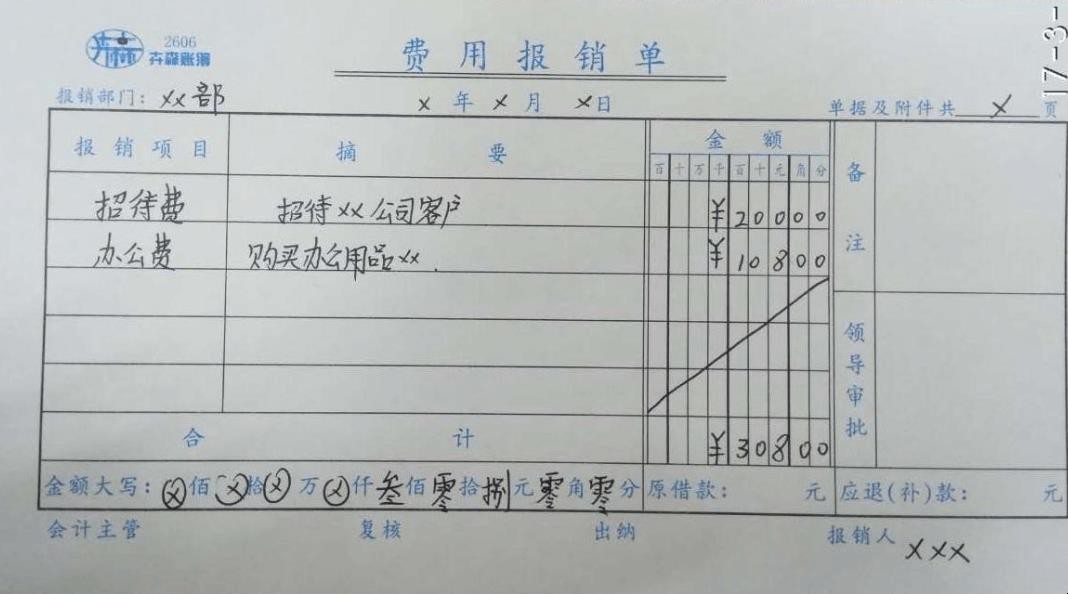 卉森 2606
卉森账簿
费用报销单
17-3-
报销部门: xx部 x年x月x日 单据及附件共 x 页
报销项目 摘要 金额 备注
百十万千百十元角分
招待费 招待xx公司客户 ¥20000
办公费 购买办公用品xx. ¥10800
领导审批
合计 ¥30800
金额大写: ⓧ佰ⓧ拾ⓧ万ⓧ仟叁佰零拾捌元零角零分 原借款: 元 应退(补)款: 元
会计主管 复核 出纳 报销人 xxx